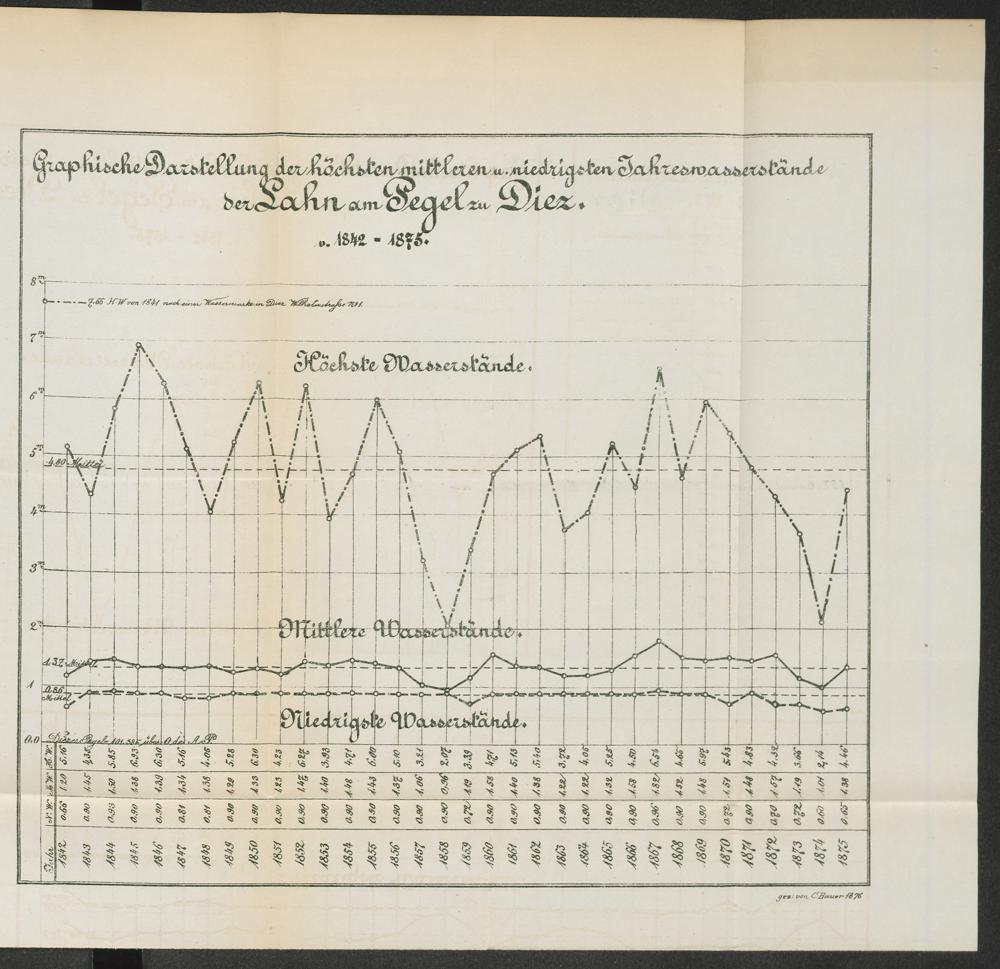 Graphische Darstellung der höchsten mittleren u. niedrigsten Jahreswasserstände
der Lahn am Pegel zu Diez.
v. 1842 - 1875.
8 m
7,66 H.W von 1841 nach einer Wassermarke in Diez Wilhelmstraße
7 m
Höchste Wasserstände.
6 m
5 m
4.80 Mittel
4 m
3 m
2 m
Mittlere Wasserstände.
1.37 Mittel
1
0.86 Mittel
Niedrigste Wasserstände.
0,0 Diezer Pegel über 0 des A.P.
H.W. 5.16 4.38 5.85 6.93 6.30 5.16 4.06 5.28 6.30 4.23 6.27 3.93 4.71 6.00 5.10 3.21 2.07 3.39 4.71 5.13 5.40 3.72 4.05 5.25 4.50 6.54 4.65 5.97 5.43 4.83 4.32 3.66 2,14 4.46
M.W. 1.20 1.45 1.50 1.38 1.39 1.34 1.38 1.29 1.33 1.23 1.47 1.40 1.48 1.43 1.37 1.06 0.96 1.19 1.58 1.40 1.38 1.22 1.22 1.32 1.58 1.82 1.52 1.48 1.51 1.48 1.57 1.19 1.01 1.38
N.W. 0.66 0.90 0.93 0.90 0.90 0.81 0.81 0.90 0.90 0.90 0.90 0.90 0.90 0.90 0.90 0.90 0.90 0.72 0.90 0.90 0.90 0.90 0.90 0.90 0.90 0.96 0.90 0.90 0.72 0.90 0.70 0.72 0.60 0.65
Jahr 1842 1843 1844 1845 1846 1847 1848 1849 1850 1851 1852 1853 1854 1855 1856 1857 1858 1859 1860 1861 1862 1863 1864 1865 1866 1867 1868 1869 1870 1871 1872 1873 1874 1875
gez: von C. Bauer 1876